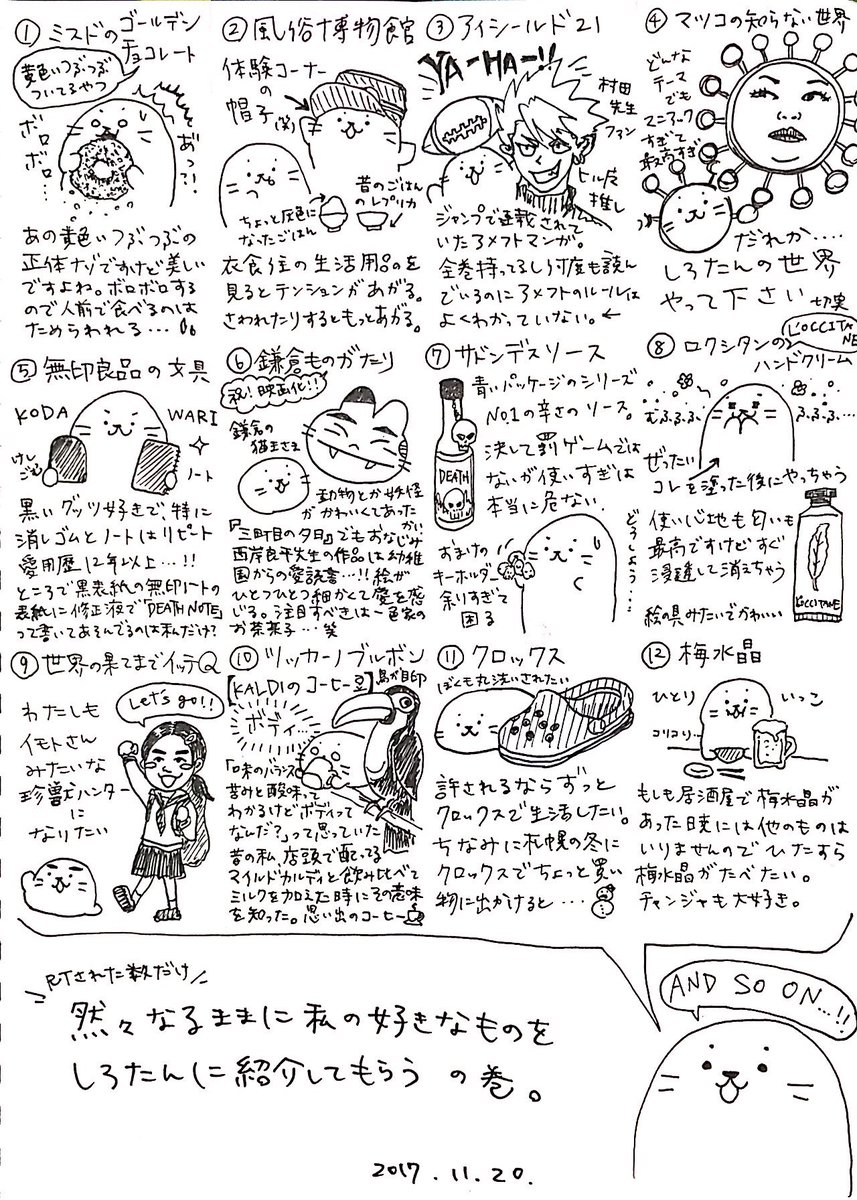 ① ミスドのゴールデン
チョコレート
黄色いつぶつぶ
ついてるやつ
ボロ
ボロ…
あっ!
あの黄色いつぶつぶの
正体ナゾですけど美しい
ですよね。ボロボロする
ので人前で食べるのは
ためらわれる…
② 風俗博物館
体験コーナー
の
帽子(笑)
昔のごはん
のレプリカ
ちょっと灰色に
なったごはん
衣食住の生活用品のを
見るとテンションがあがる。
さわれたりするともっとあがる。
③ アイシールド21
YA-HA-!!
村田
先生
ファン
ヒル魔
推し
ジャンプで連載されて
いたアメフトマンガ。
全巻持ってるし何度も読ん
でいるのにアメフトのルールは
よくわかっていない。←
④ マツコの知らない世界
どんな
テーマ
でも
マニアック
すぎて
最高すぎ
だれか....
しろたんの世界
やって下さい 切実
⑤ 無印良品の文具
KODA
WARI
けし
ごむ
ノート
黒いグッツ好きで、特に
消しゴムとノートはリピート
愛用歴12年以上…!!
ところで黒表紙の無印ノートの
表紙に修正液で「DEATH NOTE」
って書いてあそんでるのは私だけ?
⑥ 鎌倉ものがたり
祝!映画化!!
鎌倉の
猫王さま
動物とか妖怪
がかわいくてあったかい
「三町目の夕日」でもおなじみ
西岸良平先生の作品は幼稚
園からの愛読書…!!絵が
ひとつひとつ細かくて愛を感
じる。注目すべきは一色家の
お茶菓子…笑
⑦ サドンデスソース
青いパッケージのシリーズ
No.1の辛さのソース。
決して罰ゲームでは
ないが使いすぎは
本当に危ない.
DEATH
おまけの
キーホルダー
余りすぎて
困る
どうしよう…
⑧ ロクシタンの
L'OCCITANE
ハンドクリーム
むふふふ
ふふふ…
ぜったい
コレを塗った後にやっちゃう
使い心地も匂いも
最高ですけどすぐ
浸透して消えちゃう
絵の具みたいでかわいい
L'OCCITANE
⑨ 世界の果てまでイッテQ
Let's go!!
わたしも
イモトさん
みたいな
珍獣ハンター
に
なりたい
⑩ ツッカーノブルボン
【KALDIのコーヒー豆】鳥が目印
ボディ…
「味のバランス
苦みと酸味って
わかるけどボディって
なんだ?」って思っていた
昔の私、店頭で配ってる
マイルドカルディと飲み比べて
ミルクを加えた時にその意味
を知った。思い出のコーヒー
⑪ クロックス
ぼくも丸洗いされたい
許されるならずっと
クロックスで生活したい。
ちなみに札幌の冬に
クロックスでちょっと買い
物に出かけると…
⑫ 梅水晶
ひとり
いっこ
コリコリ…
もしも居酒屋で梅水晶が
あった暁には他のものは
いりませんのでひたすら
梅水晶がたべたい。
チャンジャも大好き。
RTされた数だけ
然々なるままに私の好きなものを
しろたんに紹介してもらう の巻。
AND SO ON...!!
2017.11.20.